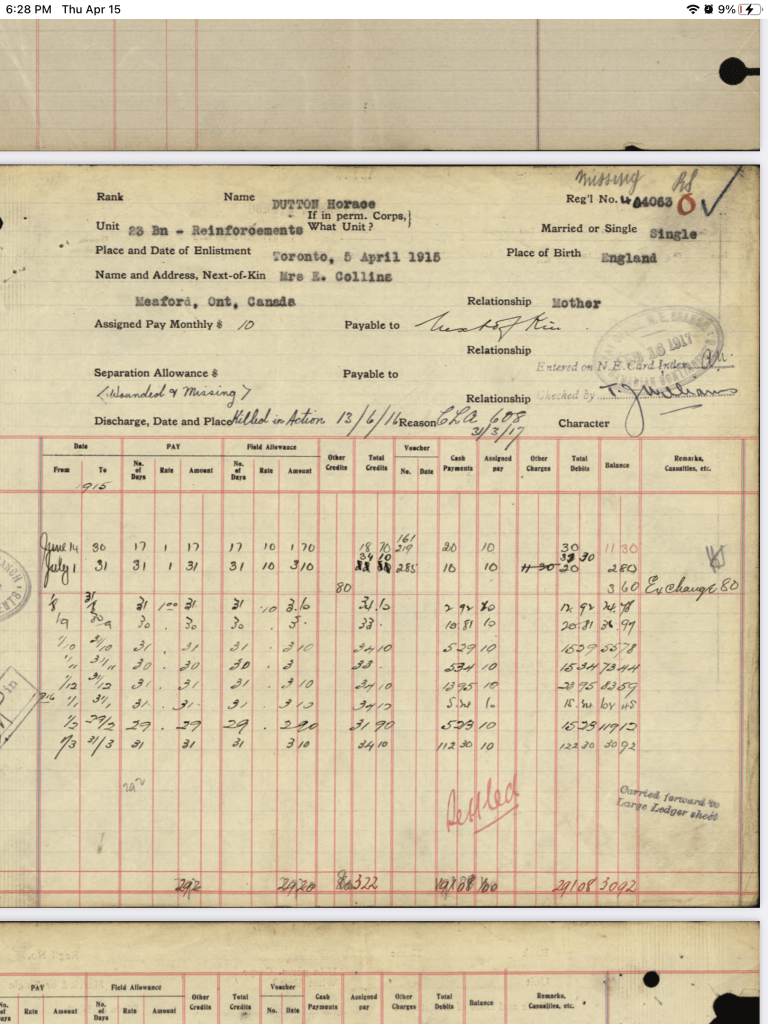 6:28 PM Thu Apr 15
9%
Missing
Rank
Name DUTTON Horace
Reg'l No. 404063
Unit 23 Bn - Reinforcements
If in perm. Corps,
What Unit?
Married or Single Single
Place and Date of Enlistment Toronto, 5 April 1915
Place of Birth England
Name and Address, Next-of-Kin Mrs E. Collins
Meaford, Ont, Canada
Relationship Mother
Assigned Pay Monthly $ 10
Payable to Next of Kin
Relationship
Entered on N.E. Card Index
Separation Allowance $
Payable to
(Wounded & Missing)
Relationship
Checked by T. J. Williams
Discharge, Date and Place Killed in Action 13/6/16 Reason CLA 608
31/3/17
Character
Date PAY Field Allowance Other Credits Total Credits Voucher Cash Payments Assigned pay Other Charges Total Debits Balance Remarks, Casualties, etc.
From To No. of Days Rate Amount No. of Days Rate Amount No. Date
1915
161
June 14 30 17 1 17 17 10 1 70 18 70 219 20 10 30 11 30
34 10
July 1 31 31 1 31 31 10 3 10 285 10 10 20 2 80
80 3 60 Exchange 80
1/8 31/8 31 1.00 31 31 .10 3.10 34.10 2 92 10 12.92
1/9 30/9 30 . 30 30 . 3. 33. 10 81 10 20 81
1/10 31/10 31 . 31 31 3 10 34 10 5 29 10 15 29 55 78
1/11 30 . 30 30 . 3 33. 5 34 10 15 34 73 44
1/12 31/12 31 . 31 31 . 3 10 34 10 13 95 10 23 95 83 59
1916 1/1 31/1 31 . 31 31 . 3 10 34 10
1/2 29/2 29 . 29 29 . 2 90 31 90 5 23 10 15 23 119 12
1/3 31/3 31 31 31 3 10 34 10 112 30 10 122 30 30 92
Settled
Carried forward to
Large Ledger sheet
292 29 20 322 191 08 100 291 08 30 92
PAY Field Allowance Other Credits Total Credits Voucher Cash Payments Assigned pay Other Charges Total Debits Balance Remarks, Casualties, etc.
Rate Amount No. of Days Rate Amount No. Date